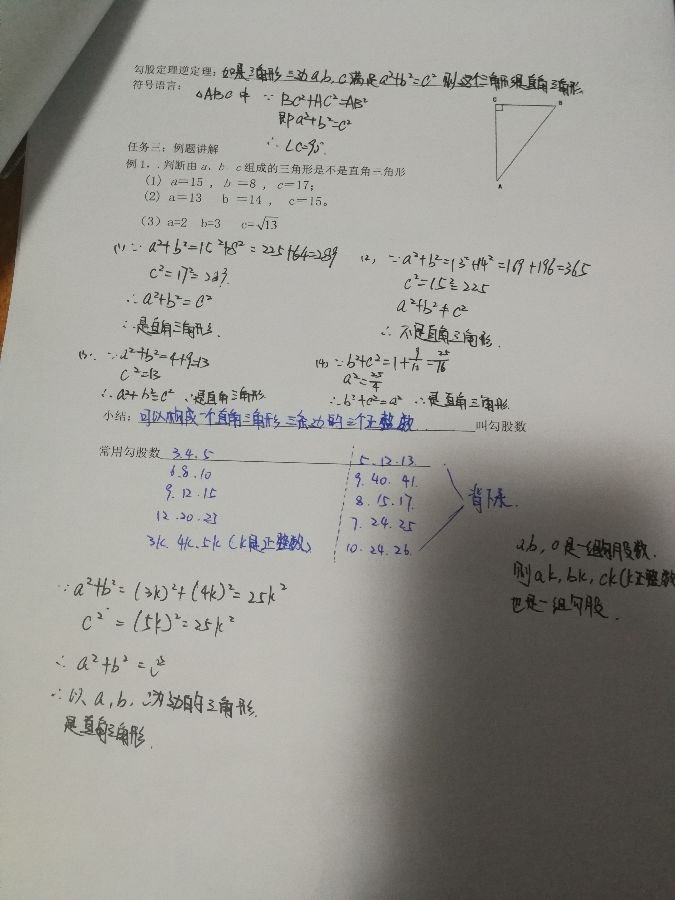 勾股定理逆定理：如果三角形三边a b, c 满足a²+b²=c² 则这个三角形是直角三角形
符号语言：
△ABC中 ∵ BC²+AC²=AB²
即a²+b²=c²
∴ ∠C=90°.
C B
A
任务三：例题讲解
例1，.判断由a、b c组成的三角形是不是直角三角形
(1) a＝15 ，b ＝8 ，c＝17；
(2) a＝13 b ＝14 ， c＝15。
(3) a=2 b=3 c=√13
(1) ∵ a²+b²=15²+8² = 225+64=289
c²=17²=289.
∴ a²+b²=c²
∴ 是直角三角形.
(2) ∵ a²+b²=13²+14²=169+196=365
c²=15²=225
a²+b²≠c²
∴ 不是直角三角形.
(3) ∵ a²+b²=4+9=13
c²=13
∴ a²+b²=c² ∴是直角三角形
(4) ∵ b²+c²=1+9/16=25/16
a²=25/4
∴ b²+c²=a² ∴ 是直角三角形.
小结：可以构成一个直角三角形三条边的三个正整数 叫勾股数
常用勾股数 3.4.5
6.8.10
9.12.15
12.20.25
3k. 4k. 5k (k是正整数)
5.12.13.
9.40.41.
8.15.17.
7.24.25
10.24.26.
背下来.
a b, c 是一组勾股数.
则ak, bk, ck (k正整数
也是一组勾股.
∵ a²+b²=(3k)²+(4k)²=25k²
c² = (5k)²=25k²
∴ a²+b²=c²
∴以 a, b, c为边的三角形.
是直角三角形.